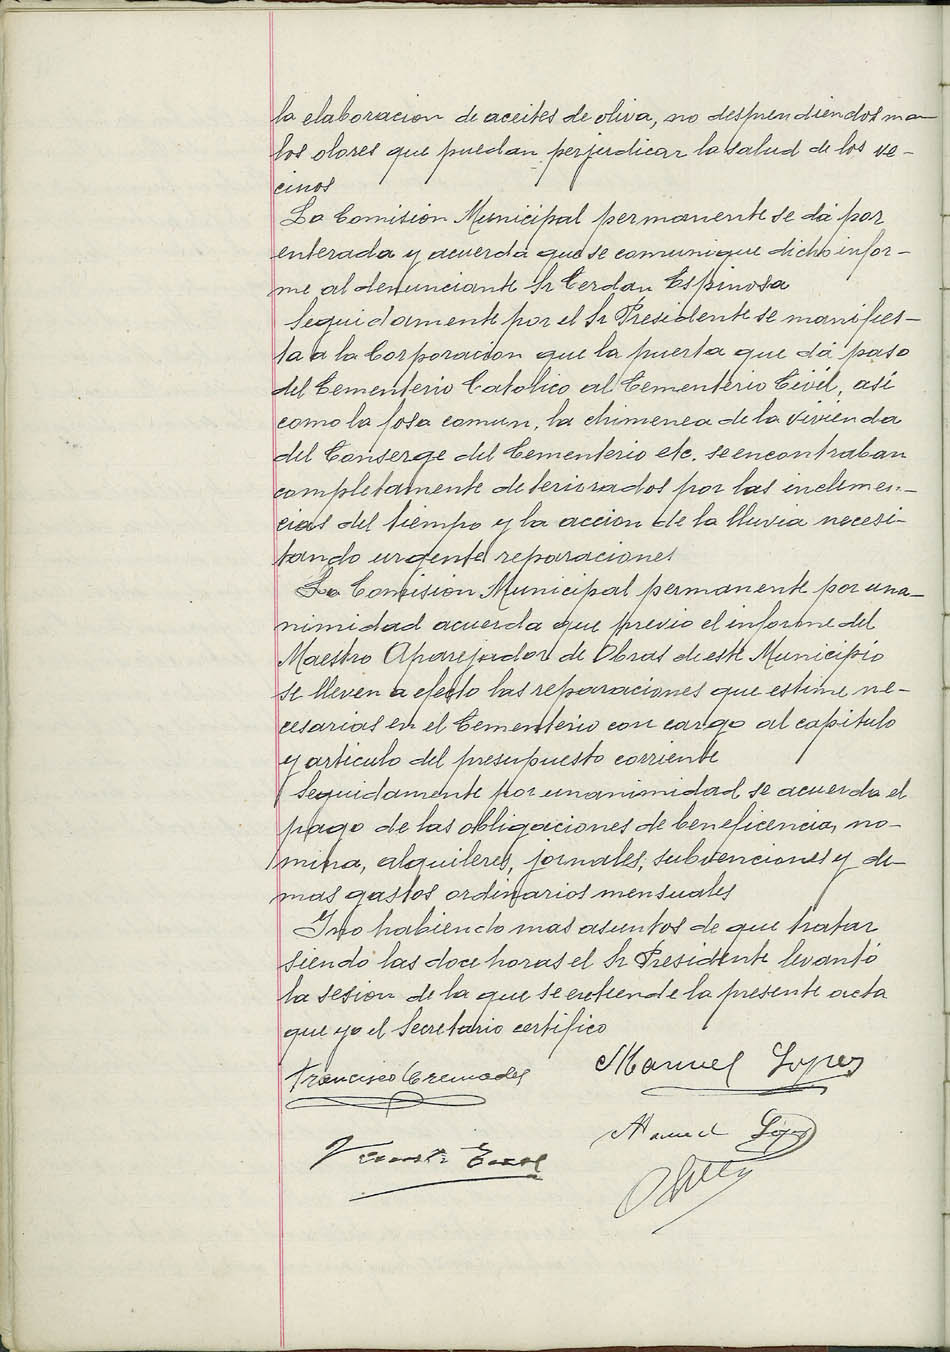 la elaboracion de aceites de oliva, no desprendiendos ma-
los olores que puedan perjudicar la salud de los ve-
cinos
La Comisión Municipal permanente se dá por
enterada y acuerda que se comunique dicho infor-
me al denunciante Sr Cerdan Espinosa
Seguidamente por el Sr Presidente se manifies-
ta a la Corporación que la puerta que dá paso
del Cementerio Catolico al Cementerio Civil, asi
como la fosa comun, la chimenea de la vivienda
del Conserge del Cementerio etc. se encontraban
completamente deteriorados por las inclemen-
cias del tiempo y la accion de la lluvia necesi-
tando urgente reparaciones
La Comision Municipal permanente por una-
nimidad acuerda que previo el informe del
Maestro Aparejador de Obras de este Municipio
se lleven a efecto las reparaciones que estime ne-
cesarias en el Cementerio con cargo al capitulo
y articulo del presupuesto corriente
Seguidamente por unanimidad se acuerda el
pago de las obligaciones de beneficencia, no-
mina, alquileres, jornales, subvenciones y de-
mas gastos ordinarios mensuales
Y no habiendo mas asuntos de que tratar
siendo las doce horas el Sr Presidente levantó
la sesion de la que se extiende la presente acta
que yo el Secretario certifico
Francisco Cremades
Manuel Lopez
Manuel
Vicente